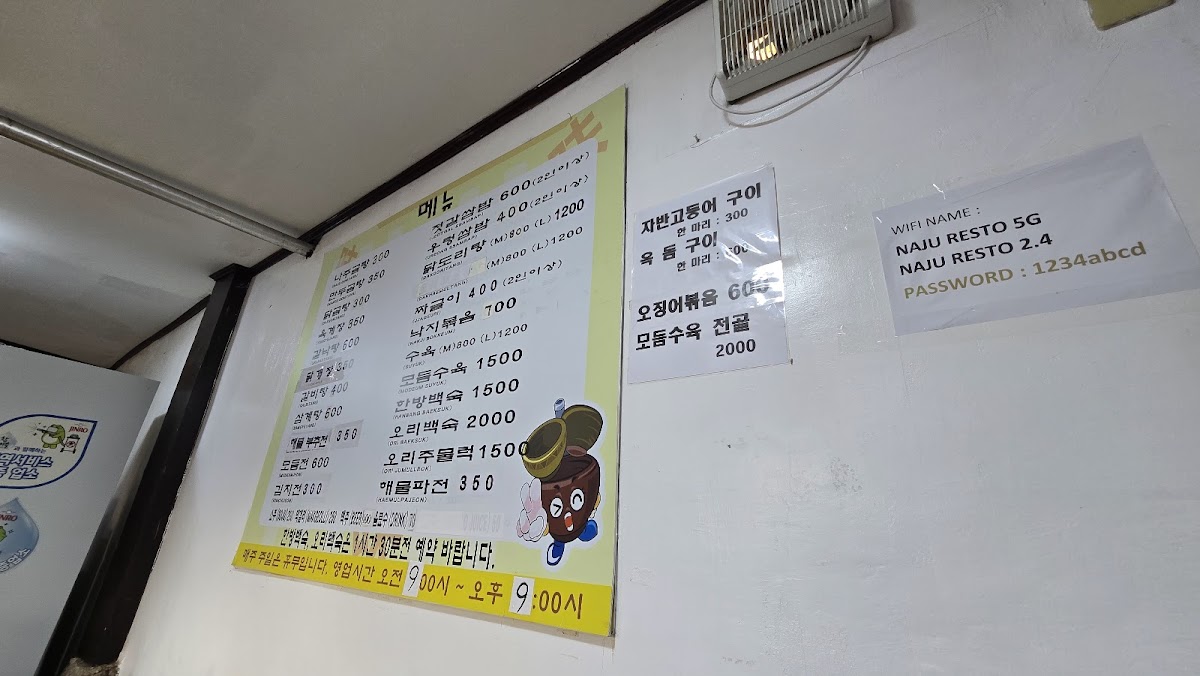 메뉴
나주곰탕 300
만두곰탕 350
닭곰탕 300
육개장 350
갈낙탕 600
닭개장 350
갈비탕 400
삼계탕 600
해물 부추전 350
모듬전 600
김치전 300
우렁쌈밥 400 (2인이상)
(M)800 (L)1200
닭도리탕 (M)800 (L)1200
짜글이 400 (2인이상)
낙지볶음 700
(NAKJI BOKKEUM)
수육 (M)800 (L)1200
(SUYUK)
모듬수육 1500
(MODEUM SUYUK)
한방백숙 1500
(HANBANG BAEKSUK)
오리백숙 2000
(ORI BAEKSUK)
오리주물럭 1500
(ORI JUMULLEUK)
해물파전 350
(HAEMULPAJEON)
한방백숙, 오리백숙은 1시간 30분전 예약 바랍니다.
매주 주일은 휴무입니다. 영업시간 오전 9:00시 ~ 오후 9:00시
자반고등어 구이
한 마리 : 300
옥 돔 구이
한 마리 : 500
오징어볶음 600
모듬수육 전골
2000
WIFI NAME :
NAJU RESTO 5G
NAJU RESTO 2.4
PASSWORD : 1234abcd
JINRO